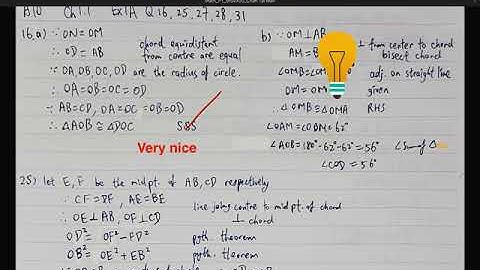 B10 Ch1.1 Ex1A Q.16, 25, 27, 28, 31
16.a) ∵ ON = OM
∴ CD = AB chord equidistant from centre are equal
∵ OA, OB, OC, OD are the radius of circle.
∴ OA=OB=OC=OD
∵ AB=CD, OA=OC=OB=OD
∴ △AOB ≅ △DOC SSS
Very nice
b) ∵ OM ⊥ AB
AM = B ⊥ from center to chord bisect chord
∠OMB=∠OM adj. ∠ on straight line
OM = OM given
∴ △OMB ≅ △OMA RHS
∠OAM=∠ODN=62°
∠AOB=180°-62°-62°=56° ∠sum of △
∠COD=56°
25) let E, F be the midpt. of AB, CD respectively
∴ CF = DF, AE = BE
∴ OE⊥AB, OF⊥CD line joins centre to midpt. of chord ⊥ chord
OD² = OF²-FD² pyth. theorem
OB² = OE²+EB² pyth. theorem